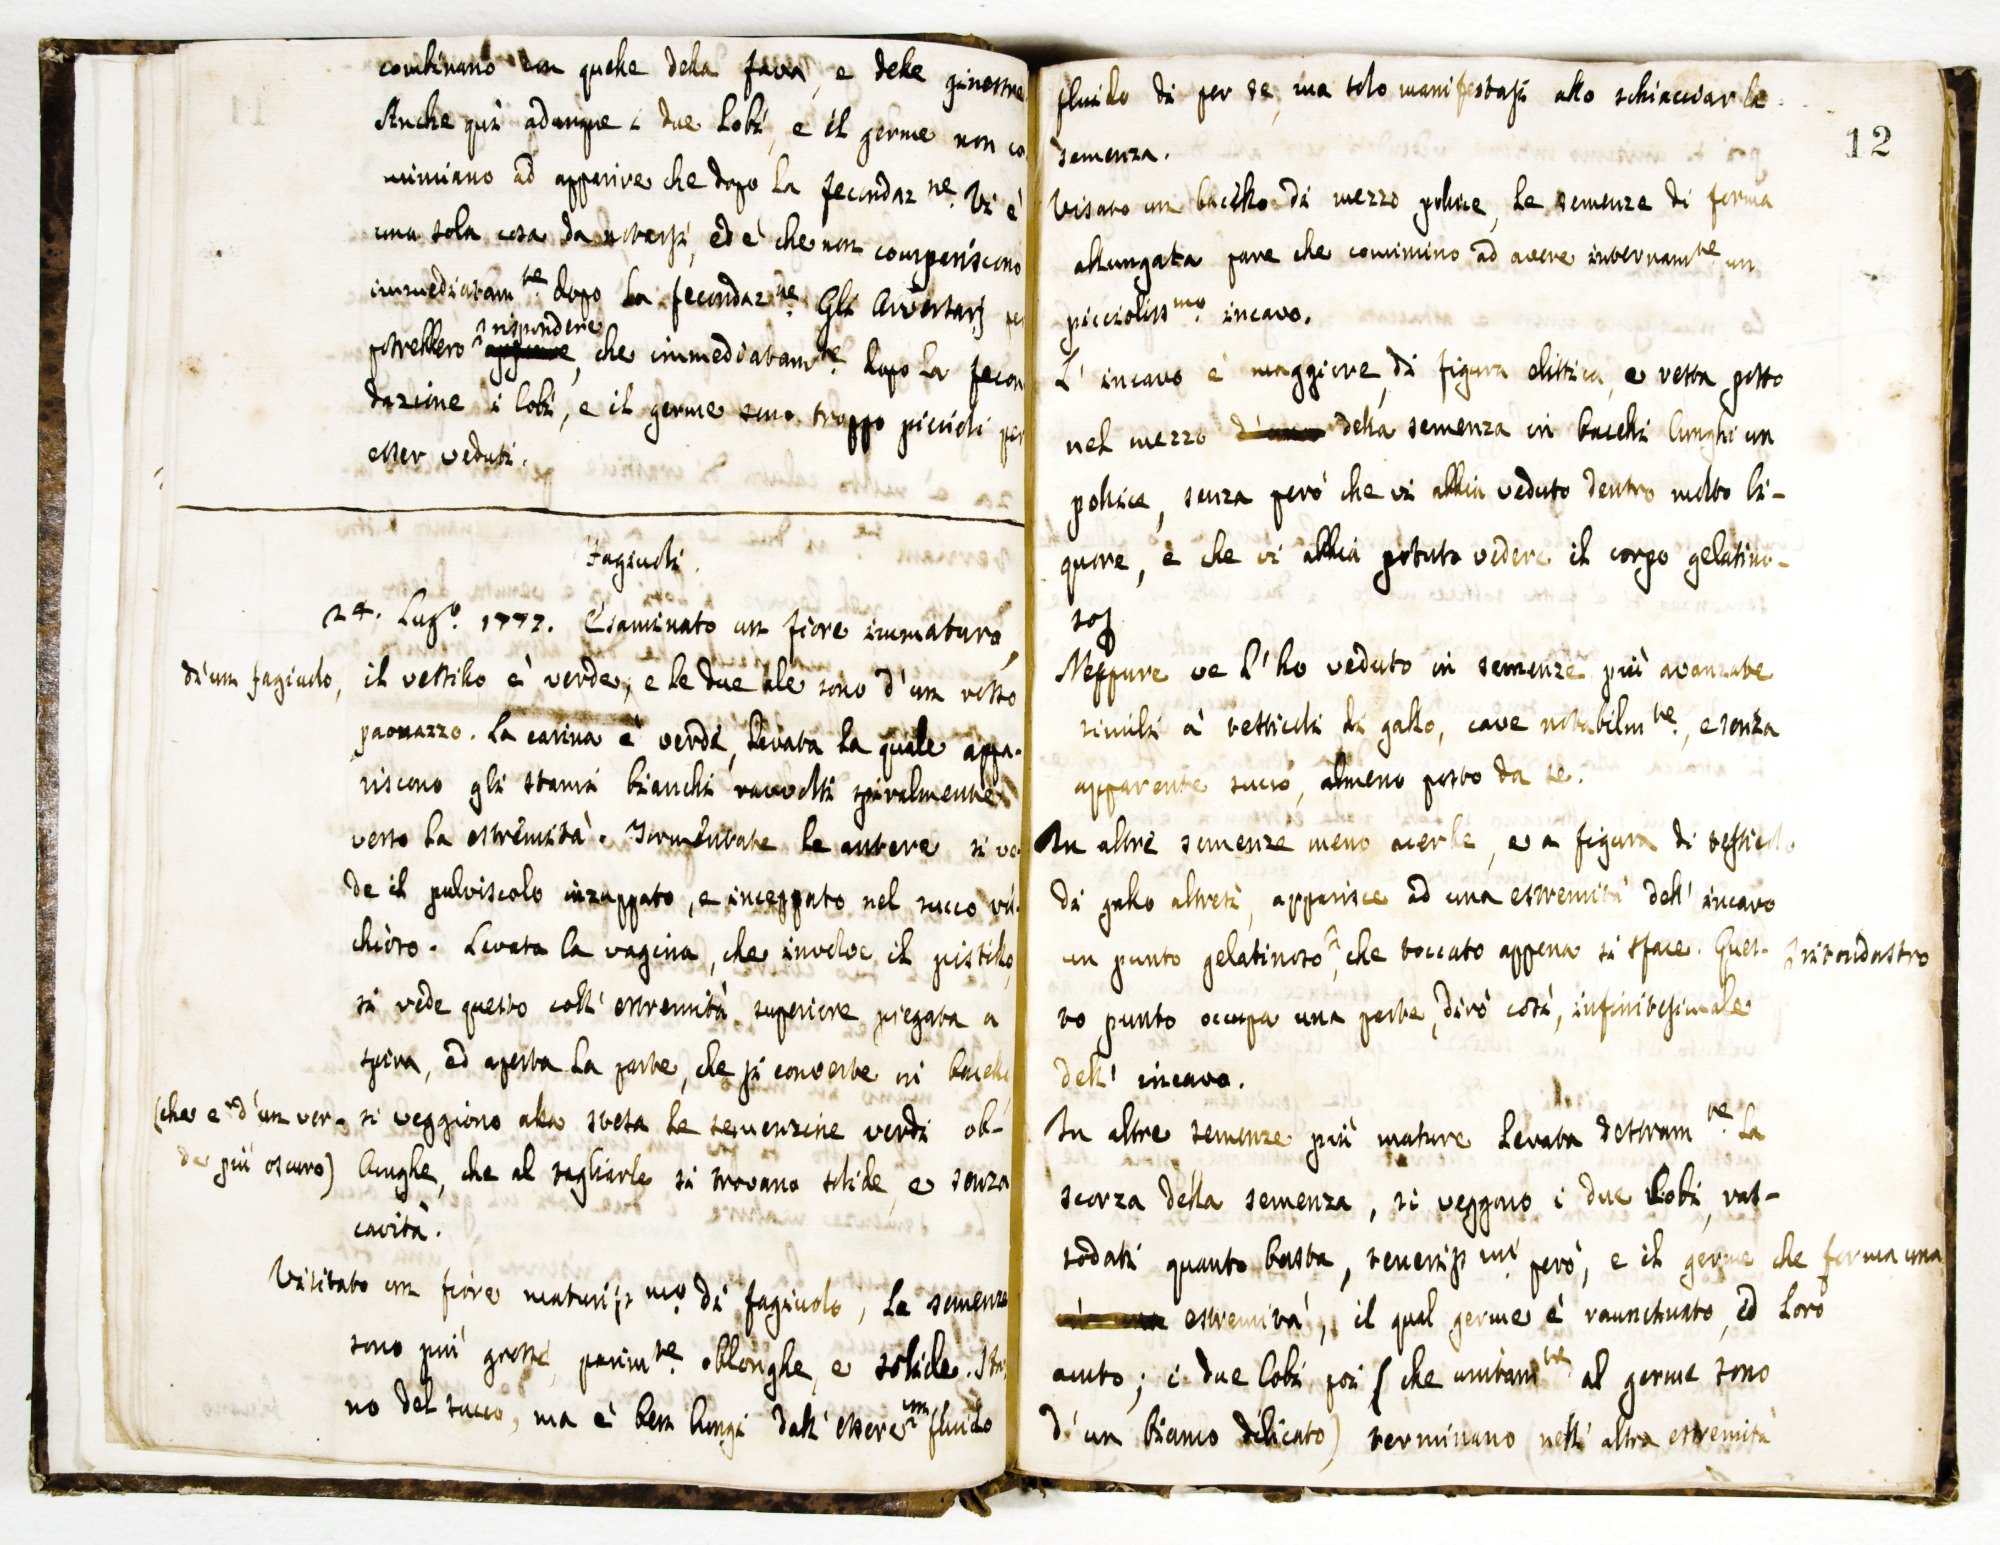 combinano con quelle della fava, e delle ginestre.
Anche quì adunque i due Lobi, e il germe non co
minciano ad apparire che dopo la fecondaz.ne Vi è
una sola cosa da notarsi, ed è che non compariscono
immediatam.te dopo la fecondaz.ne Gli Avversarj
potrebbero rispondere, che immediatam.te dopo la fecon
dazione i lobi, e il germe sono troppo piccioli per
esser veduti.
Fagiuoli.
24. Lug.o 1777. Esaminato un fiore immaturo,
di un fagiuolo, il vessillo è verde, e le due ale sono d'un rosso
paonazzo. La carina è verde, levata la quale appa-
riscono gli stami bianchi ravvolti spiralmente
verso la estremità. Tormentate le antere si ve
de il pulviscolo inzuppato, e inceppato nel succo vi-
chioso. Levata la vagina, che involve il pistillo,
si vede questo coll' estremità superiore piegata a
spira, ed aperta la parte, che si converte in
(che è d'un ver- si veggiono alla sveta le semenzine verdi ob-
de più oscuro) lunghe, che al tagliarle si trovano solide, e senza
cavità.
Visitato un fiore maturiss.mo di fagiuolo, le semenze
sono più grosse, parim.te oblonghe, e solide.
no del succo, ma è ben lungi dall' essere un fluido
12
fluido di per se, ma solo manifestasi allo schiacciar la
semenza.
Visato un bacello di mezzo pollice, le semenze di forma
allungata pare che comincino ad avere internam.te un
piccioliss.mo incavo.
L' incavo è maggiore, di figura elittica, e resta posto
nel mezzo della semenza in bacelli lunghi un
pollice, senza però che vi abbia veduto dentro molto li-
quore, e che vi abbia potuto vedere il corpo gelatino-
so.
Neppure ve l' ho veduto in semenze più avanzate
simili a' testicoli di gallo, cave notabilm.te, e senza
apparente succo, almeno posto da se.
In altre semenze meno acerbe, e a figura di testicolo
di gallo altresì, apparisce ad una estremità dell' incavo
un punto gelatinoso, che toccato appena si sface. Ques- ritondastro
to punto occupa una parte, dirò così, infinitesimale
dell' incavo.
In altre semenze più mature levata destram.te la
scorza della semenza, si veggono i due Lobi, ras-
sodati quanto basta, teneriss.mi però, e il germe che forma una
estremità, il qual germe è raunchiato, ed loro
acuto; i due lobi poi (che unitam.te al germe sono
d' un bianco dilicato) terminano nell' altra estremità